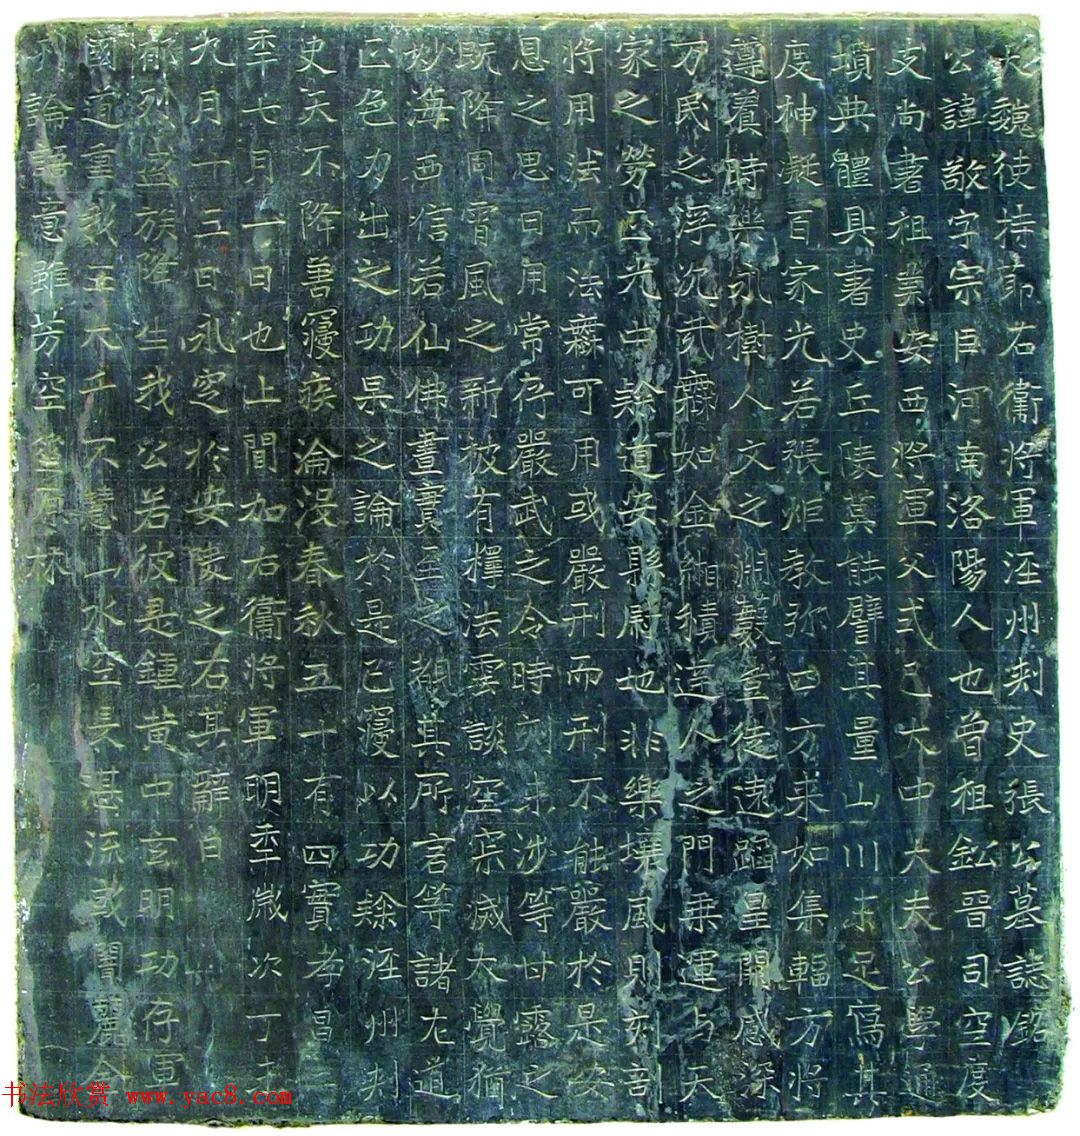 大魏使持節右衞將軍涇州刺史張公墓誌銘
公諱敬字宗臣河南洛陽人也曾祖鈆晉司空度
支尚書祖業安西將軍父弍己大中大夫公學通
墳典體具書史丘陵莫能譬其量山川未足寫其
度神凝百家光若張炬教弥四方来如集輻方將
遵養時樂永樹人文之蘂徒遠蹈皇開感深
万民之浮沉弍如金細積逕人之門乗運与天
家之勞正光中除道安縣尉地非樂壤風則刻
將用法而法罪可用或嚴刑而刑不能嚴於是
息之思日用常存嚴武之令時刻未涉等甘露之
既降同霄風之新被有擇法雲談空宗滅大覺猶
妙海西信若仙佛晝實至之覩其所言等諸尤通
正色力出之功果之論於是己寢以功除涇州刾
史天不降善寑疾淪没春秋五十有四寶孝昌
秊七月一日也上間加右衞將軍明秊歲次丁未
九月十三日永窆於安陵之右其辭曰
郁烈盛族隆生我公若彼是鍾黄中玄明功存軍
國道重我王大千不山水空長湛流或闇麗今
列論語意雖芳空原林
书法欣赏 www.yac8.com